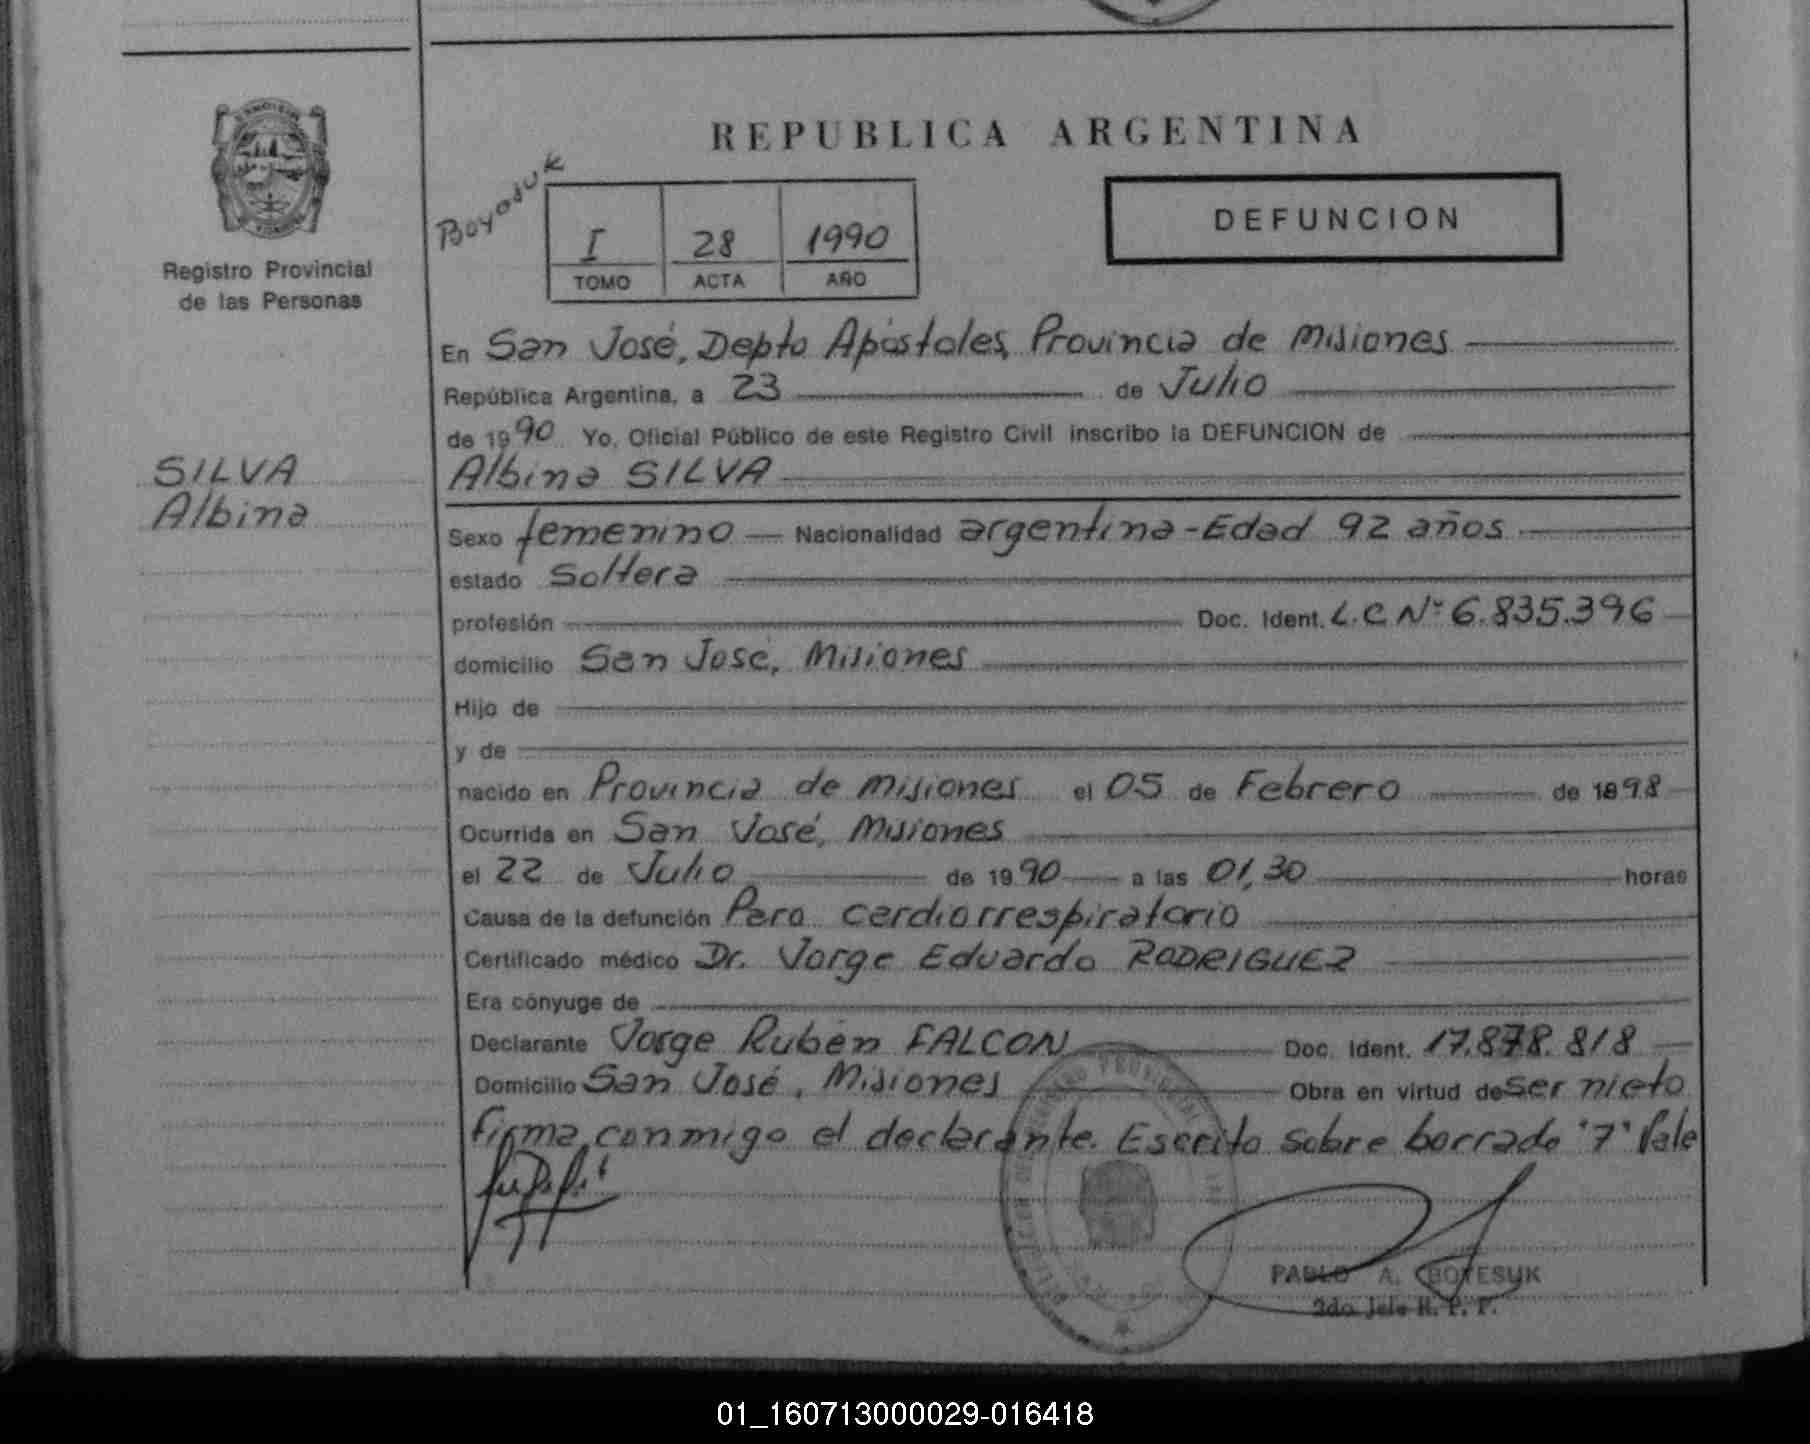 REPUBLICA ARGENTINA
Registro Provincial
de las Personas
I 28 1990
TOMO ACTA AÑO
DEFUNCION
SILVA
Albina
En San José, Depto Apóstoles, Provincia de Misiones
República Argentina, a 23 de Julio
de 1990 Yo, Oficial Público de este Registro Civil inscribo la DEFUNCION de
Albina SILVA
Sexo femenino Nacionalidad argentina - Edad 92 años
estado Soltera
profesión Doc. Ident. L.C Nº 6.835.396
domicilio San José, Misiones
Hijo de
y de
nacido en Provincia de Misiones el 05 de Febrero de 1898
Ocurrida en San José, Misiones
el 22 de Julio de 1990 a las 01,30 horas
Causa de la defunción Paro cardiorrespiratorio
Certificado médico Dr. Jorge Eduardo RODRIGUEZ
Era cónyuge de
Declarante Jorge Rubén FALCON Doc. Ident. 17.878.818
Domicilio San José, Misiones Obra en virtud de ser nieto
firma conmigo el declarante. Escrito sobre borrado "7" Vale
PABLO A. BOYESUK
2do Jefe R. P. P.
01_160713000029-016418